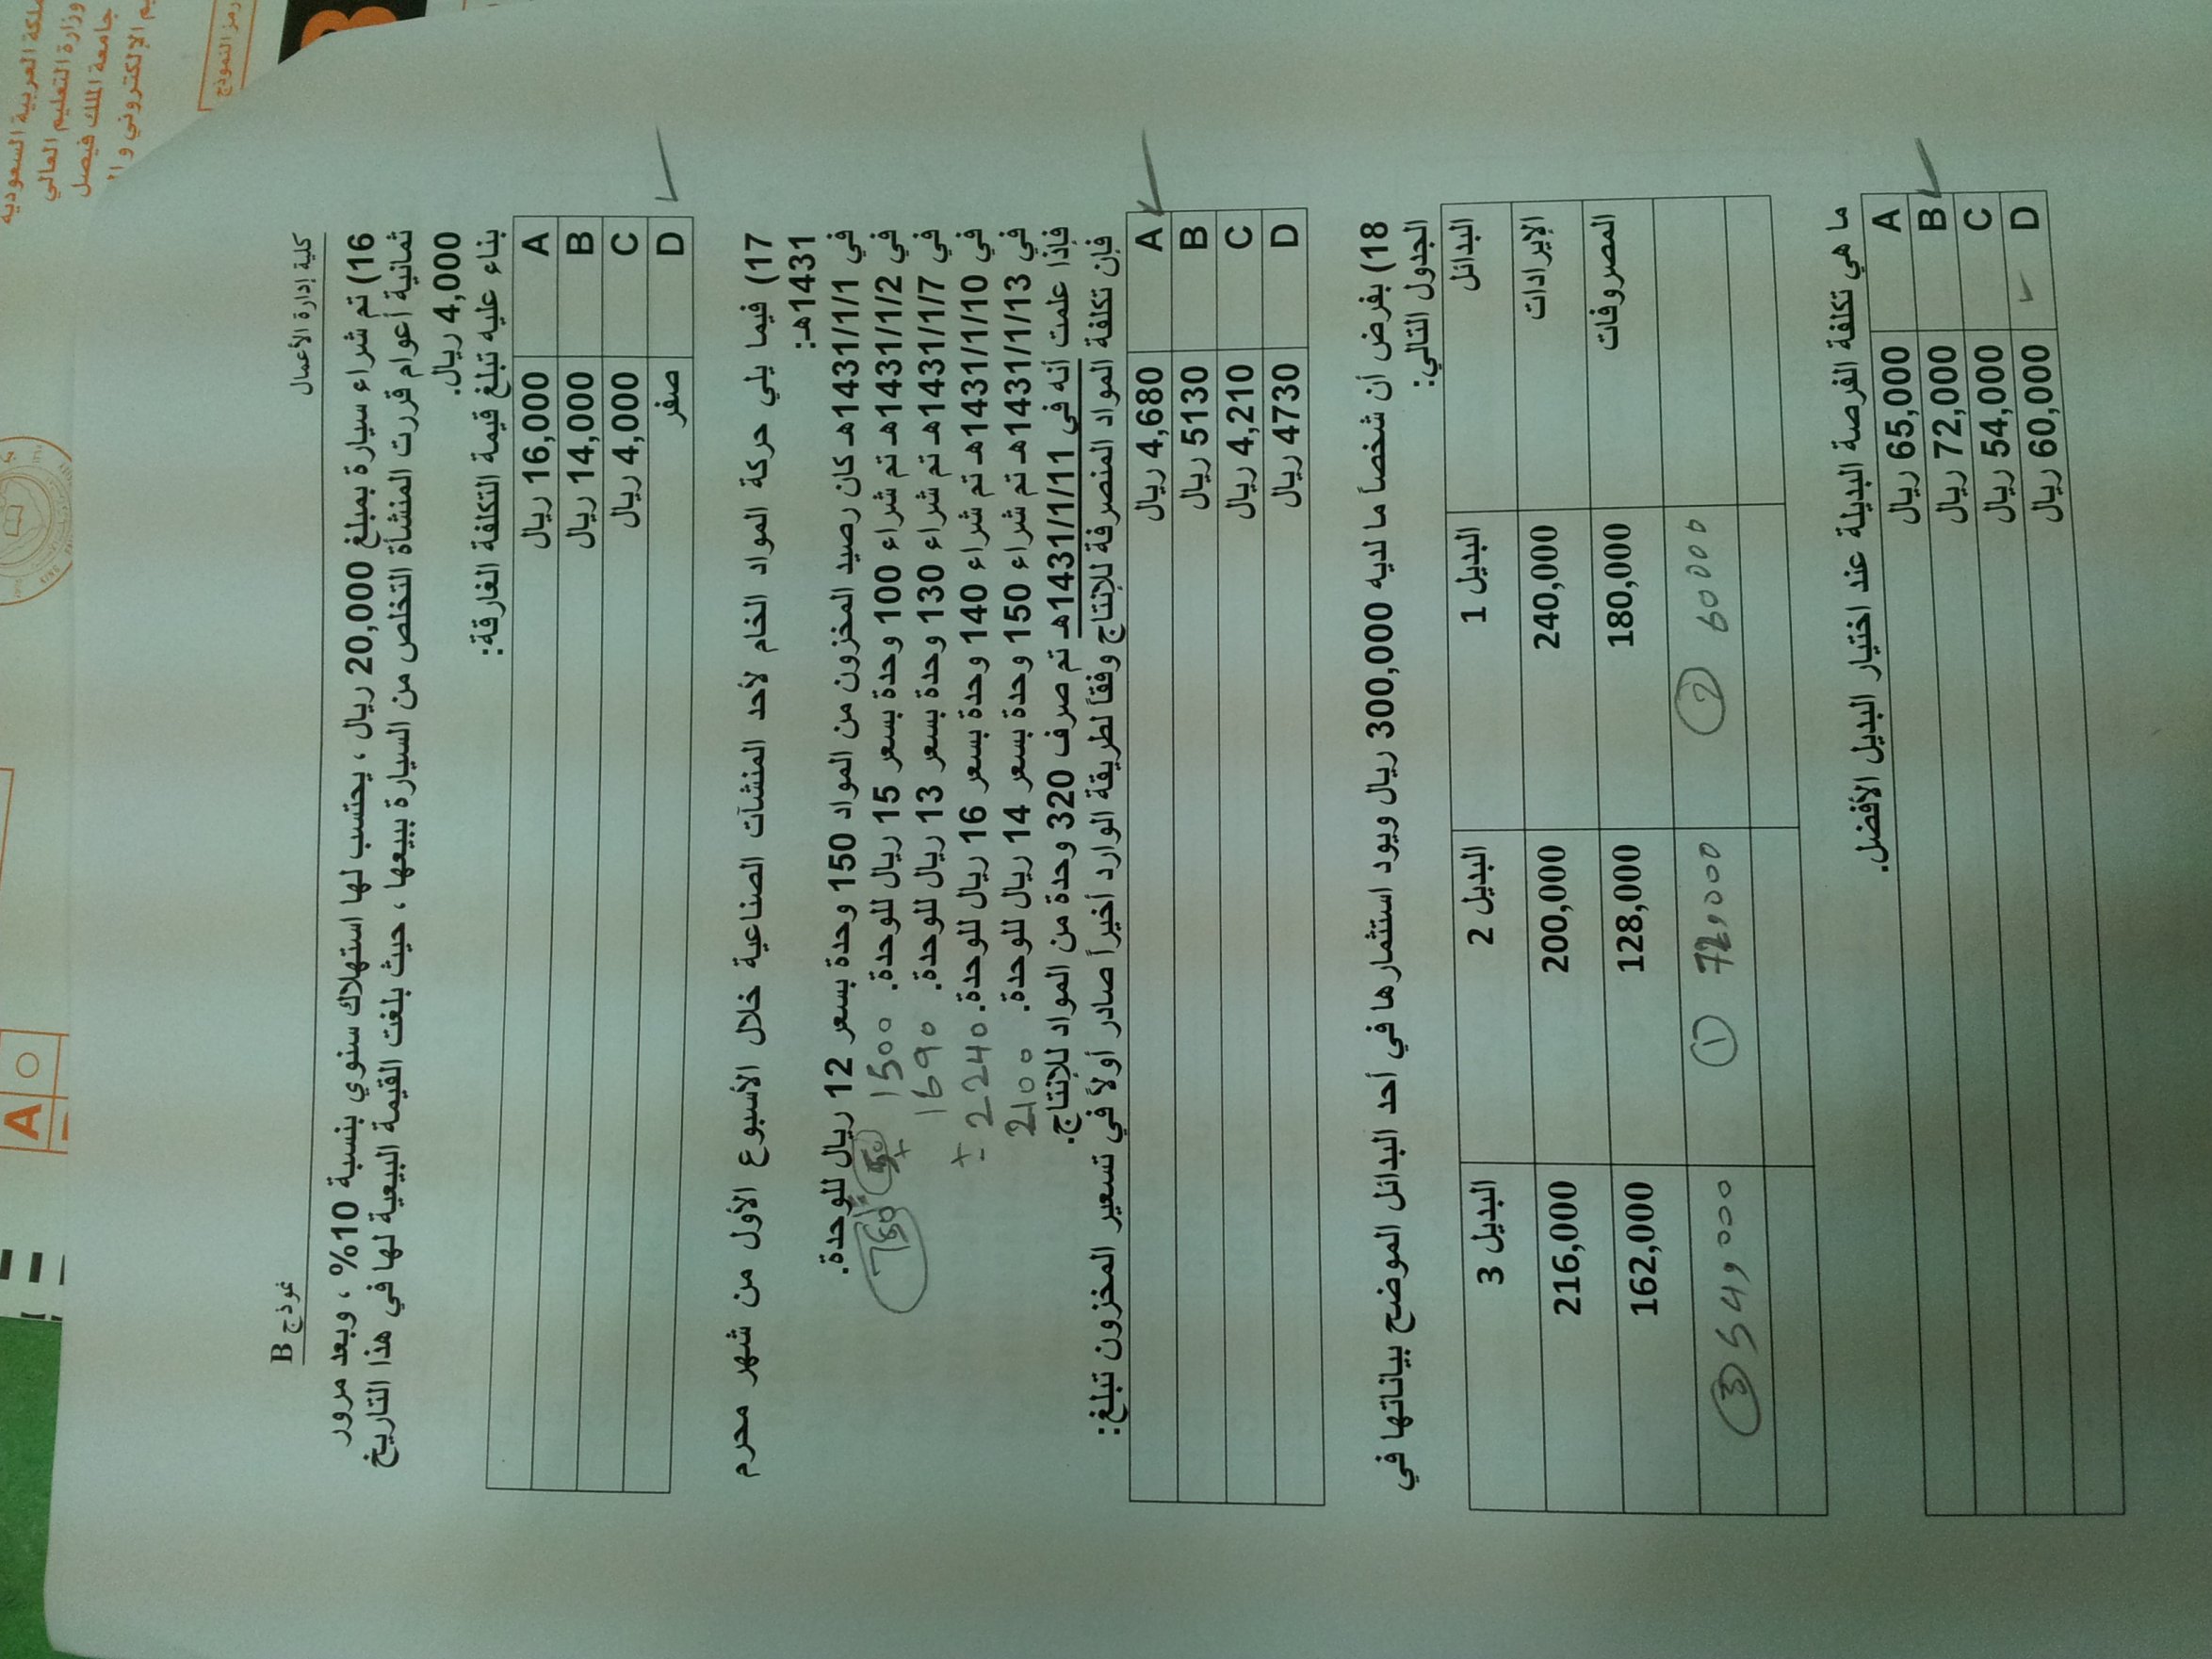 ملكة العربية السعودية
وزارة التعليم العالي
جامعة الملك فيصل
يم الإلكتروني و ال
رمز النموذج
A
كلية إدارة الأعمال
نموذج B
16) تم شراء سيارة بمبلغ 20,000 ريال ، يحتسب لها استهلاك سنوي بنسبة 10% ، وبعد مرور
ثمانية أعوام قررت المنشأة التخلص من السيارة ببيعها ، حيث بلغت القيمة البيعية لها في هذا التاريخ
4,000 ريال.
بناء عليه تبلغ قيمة التكلفة الغارقة:
A 16,000 ريال
B 14,000 ريال
C 4,000 ريال
D صفر
17) فيما يلي حركة المواد الخام لأحد المنشآت الصناعية خلال الأسبوع الأول من شهر محرم
1431هـ:
في 1431/1/1هـ كان رصيد المخزون من المواد 150 وحدة بسعر 12 ريال للوحدة.
في 1431/1/2هـ تم شراء 100 وحدة بسعر 15 ريال للوحدة. 1500
في 1431/1/7هـ تم شراء 130 وحدة بسعر 13 ريال للوحدة. 1690 +
في 1431/1/10هـ تم شراء 140 وحدة بسعر 16 ريال للوحدة. 2240 +
في 1431/1/13هـ تم شراء 150 وحدة بسعر 14 ريال للوحدة. 2100
فإذا علمت أنه في 1431/1/11هـ تم صرف 320 وحدة من المواد للإنتاج.
فإن تكلفة المواد المنصرفة للإنتاج وفقاً لطريقة الوارد أخيراً صادر أولاً في تسعير المخزون تبلغ:
A 4,680 ريال
B 5130 ريال
C 4,210 ريال
D 4730 ريال
18) بفرض أن شخصاً ما لديه 300,000 ريال ويود استثمارها في أحد البدائل الموضح بياناتها في
الجدول التالي:
البدائل البديل 1 البديل 2 البديل 3
الإيرادات 240,000 200,000 216,000
المصروفات 180,000 128,000 162,000
② 60000 ① 72,000 ③ 54,000
ما هي تكلفة الفرصة البديلة عند اختيار البديل الأفضل.
A 65,000 ريال
B 72,000 ريال
C 54,000 ريال
D 60,000 ريال